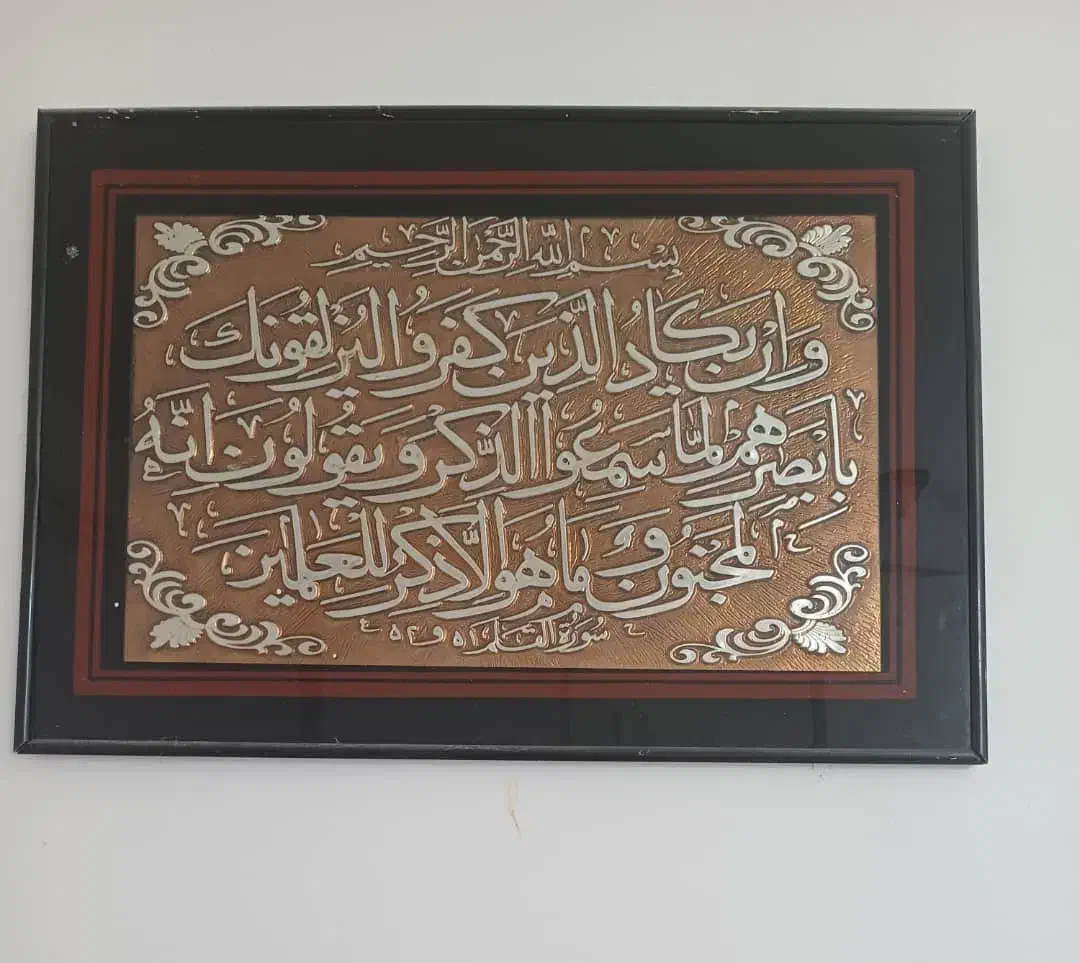 بسم الله الرحمن الرحيم
وَاِنْ يَكَادُ الَّذِينَ كَفَرُوا لَيُزْلِقُونَكَ
بِاَبْصَرِهِمْ لَمَّا سَمِعُوا الذِّكْرَ وَيَقُولُونَ اِنَّهُ
لَمَجْنُونٌ وَمَا هُوَ اِلَّا ذِكْرٌ لِلْعَلَمِينَ
سورة القلم ٥١ و ٥٢